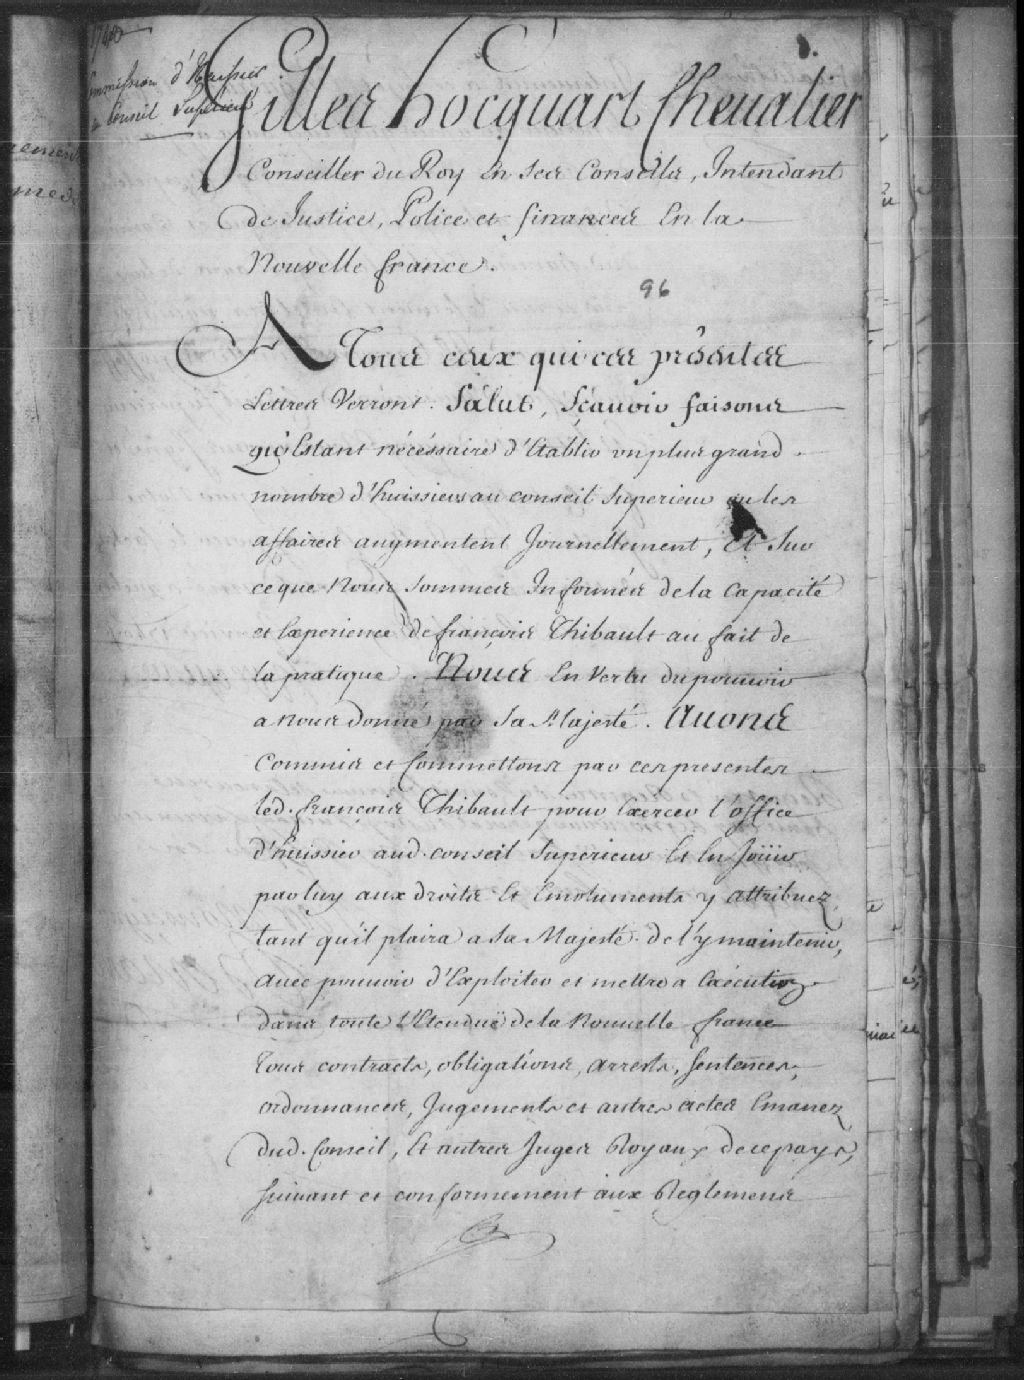 1740
Commission d'Huissier
au Conseil Superieur
Gilles hocquart Cheualier
Conseiller du Roy En ses Conseils, Intendant
de Justice, Police et finances En la
Nouvelle france.
96
A Tous ceux qui ces présentes
Lettres Verront. Salut, Sçauoir faisons
qu'Estant nécéssaire d'Etablir un plus grand
nombre d'huissiers au conseil Superieur ou les
affaires augmentent Journellement, Et Sur
ce que Nous sommes Informés de la Capacité
et Experience de françois Thibault au fait de
la pratique. Nous En Vertu du pouuoir
a nous donné par Sa Majesté. Auons
Commis et Commettons par ces presentes
led. françois Thibault pour Exercer l'office
d'huissier aud. conseil Superieur Et En Joüir
par luy aux droits Et Emoluments y attribuez
tant qu'il plaira a Sa Majesté de l'y maintenir,
auec pouuoir d'Exploiter et mettre a Exécution
dans toute l'Etenduë de la Nouuelle france
Tous contracts, obligations, arrests, Sentences,
ordonnances, Jugements et autres actes Emanez
dud. Conseil, Et autres Juges Royaux de ce pays,
suiuant et conformement aux Reglemens